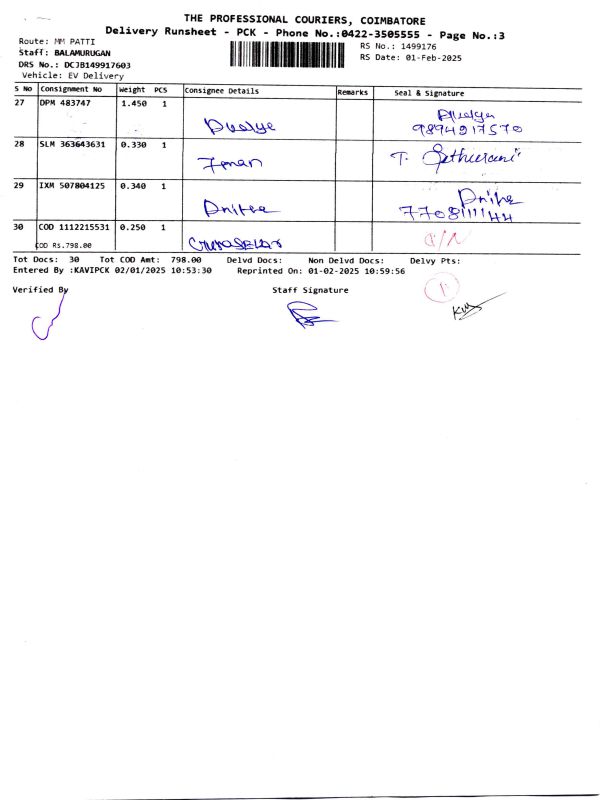 THE PROFESSIONAL COURIERS, COIMBATORE
Delivery Runsheet - PCK - Phone No.:0422-3505555 - Page No.:3
Route: MM PATTI
Staff: BALAMURUGAN
DRS No.: DCJB149917603
Vehicle: EV Delivery
RS No.: 1499176
RS Date: 01-Feb-2025
S No Consignment No Weight PCS Consignee Details Remarks Seal & Signature
27 DPM 483747 1.450 1
9894917570
28 SLM 363643631 0.330 1
29 IXM 507804125 0.340 1
7708111144
30 COD 1112215531 0.250 1
COD Rs.798.00
Tot Docs: 30 Tot COD Amt: 798.00 Delvd Docs: Non Delvd Docs: Delvy Pts:
Entered By :KAVIPCK 02/01/2025 10:53:30 Reprinted On: 01-02-2025 10:59:56
Verified By Staff Signature